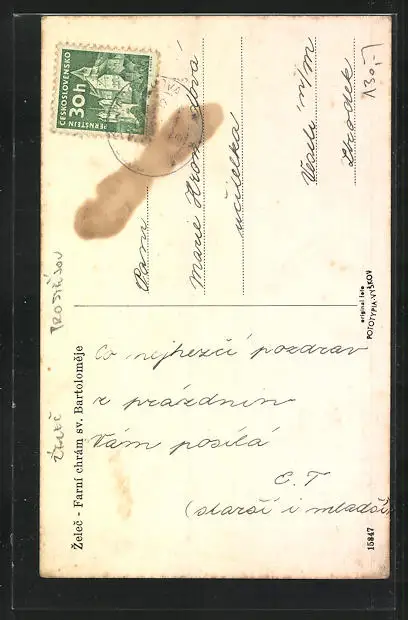 ČESKOSLOVENSKO
30h
PERNŠTEJN
130,-
Paní
Marie
učitelka
Veselí n/m
Hradek
PROSTĚJOV
ŽELEČ
Želeč - Farní chrám sv. Bartoloměje
original foto
FOTOTYPIA-VYŠKOV
Co nejhezčí pozdrav
z prázdnin
Vám posílá
E. T
(starší i mladší)
15847